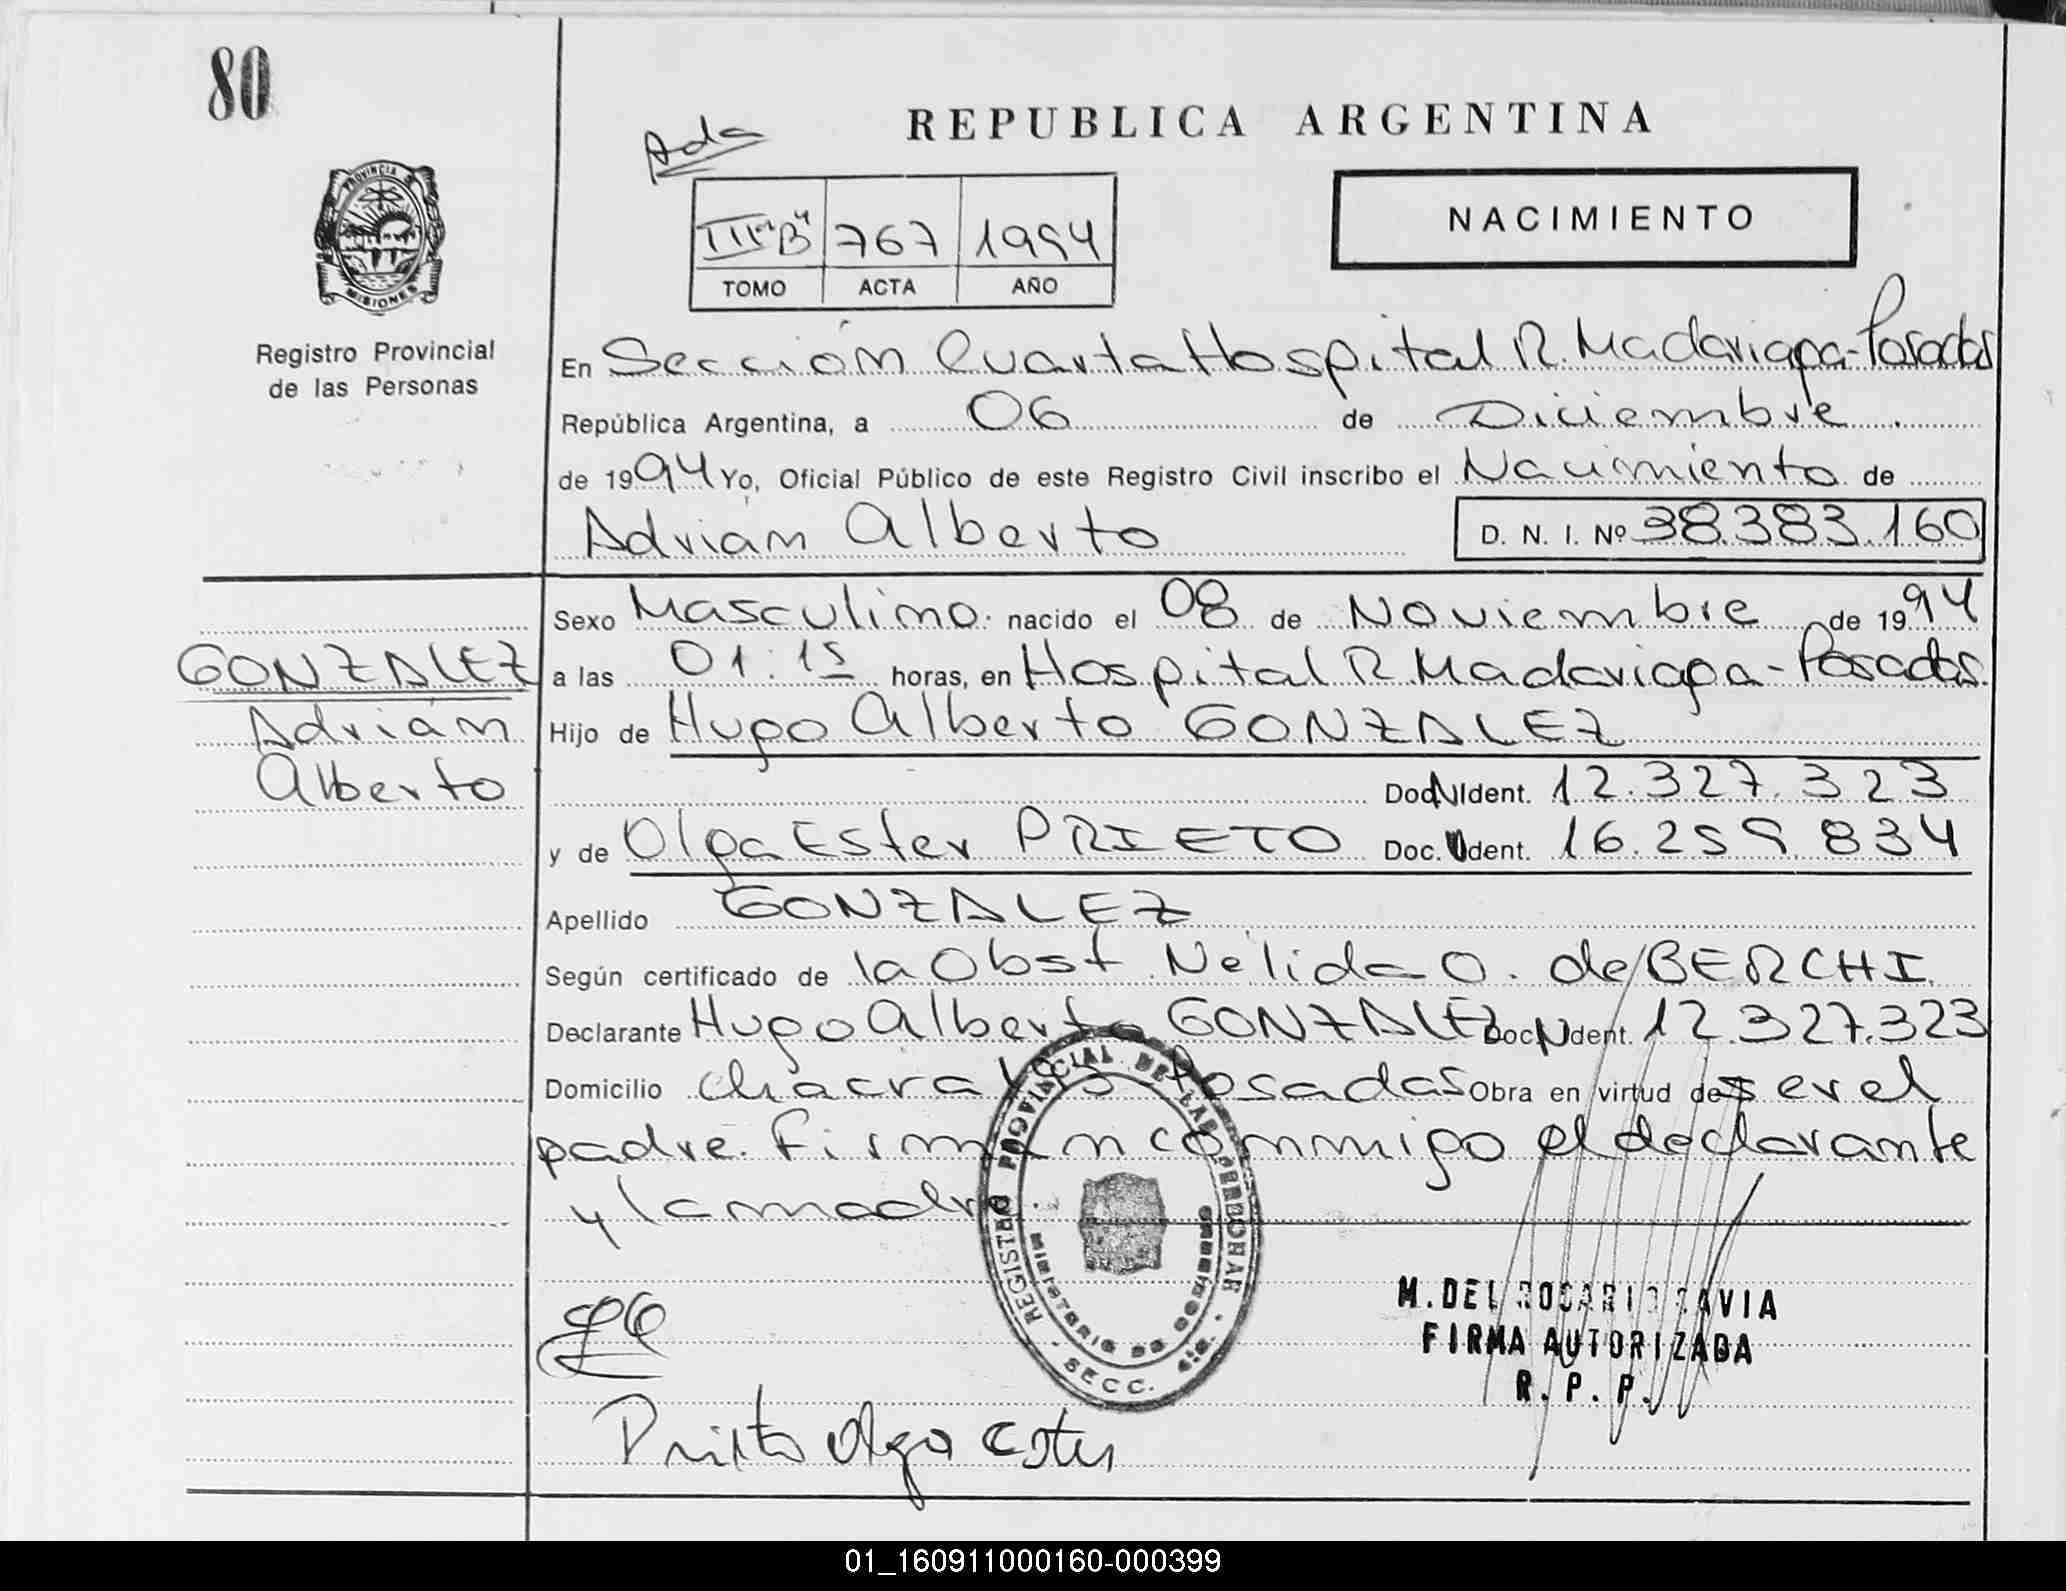 80
REPUBLICA ARGENTINA
PROVINCIA DE
MISIONES
Registro Provincial
de las Personas
767 1994
TOMO ACTA AÑO
NACIMIENTO
En Sección Cuarta Hospital R. Madariaga-Posadas
República Argentina, a 06 de Diciembre
de 1994 Yo, Oficial Público de este Registro Civil inscribo el Nacimiento de
Adrián Alberto D. N. I. Nº 38.383.160
Sexo Masculino nacido el 08 de Noviembre de 1994
a las 01:15 horas, en Hospital R Madariaga-Posadas.
GONZALEZ
Adrián
Alberto
Hijo de Hugo Alberto GONZALEZ
Doc. Ident. 12.327.323
y de Olga Ester PRIETO Doc. Ident. 16.259.834
Apellido GONZALEZ
Según certificado de la Obst. Nélida O. de BERCHI.
Declarante Hugo Alberto GONZALEZ Doc. Ident. 12.327.323
Domicilio chacra Posadas Obra en virtud de ser el
padre. Firman conmigo el declarante
y la madre.
REGISTRO PROVINCIAL DE LAS PERSONAS
MINISTERIO DE GOBIERNO
SECC.
M. DEL ROSARIO SAVIA
FIRMA AUTORIZADA
R. P. P.
Prieto Olga Ester
01_160911000160-000399